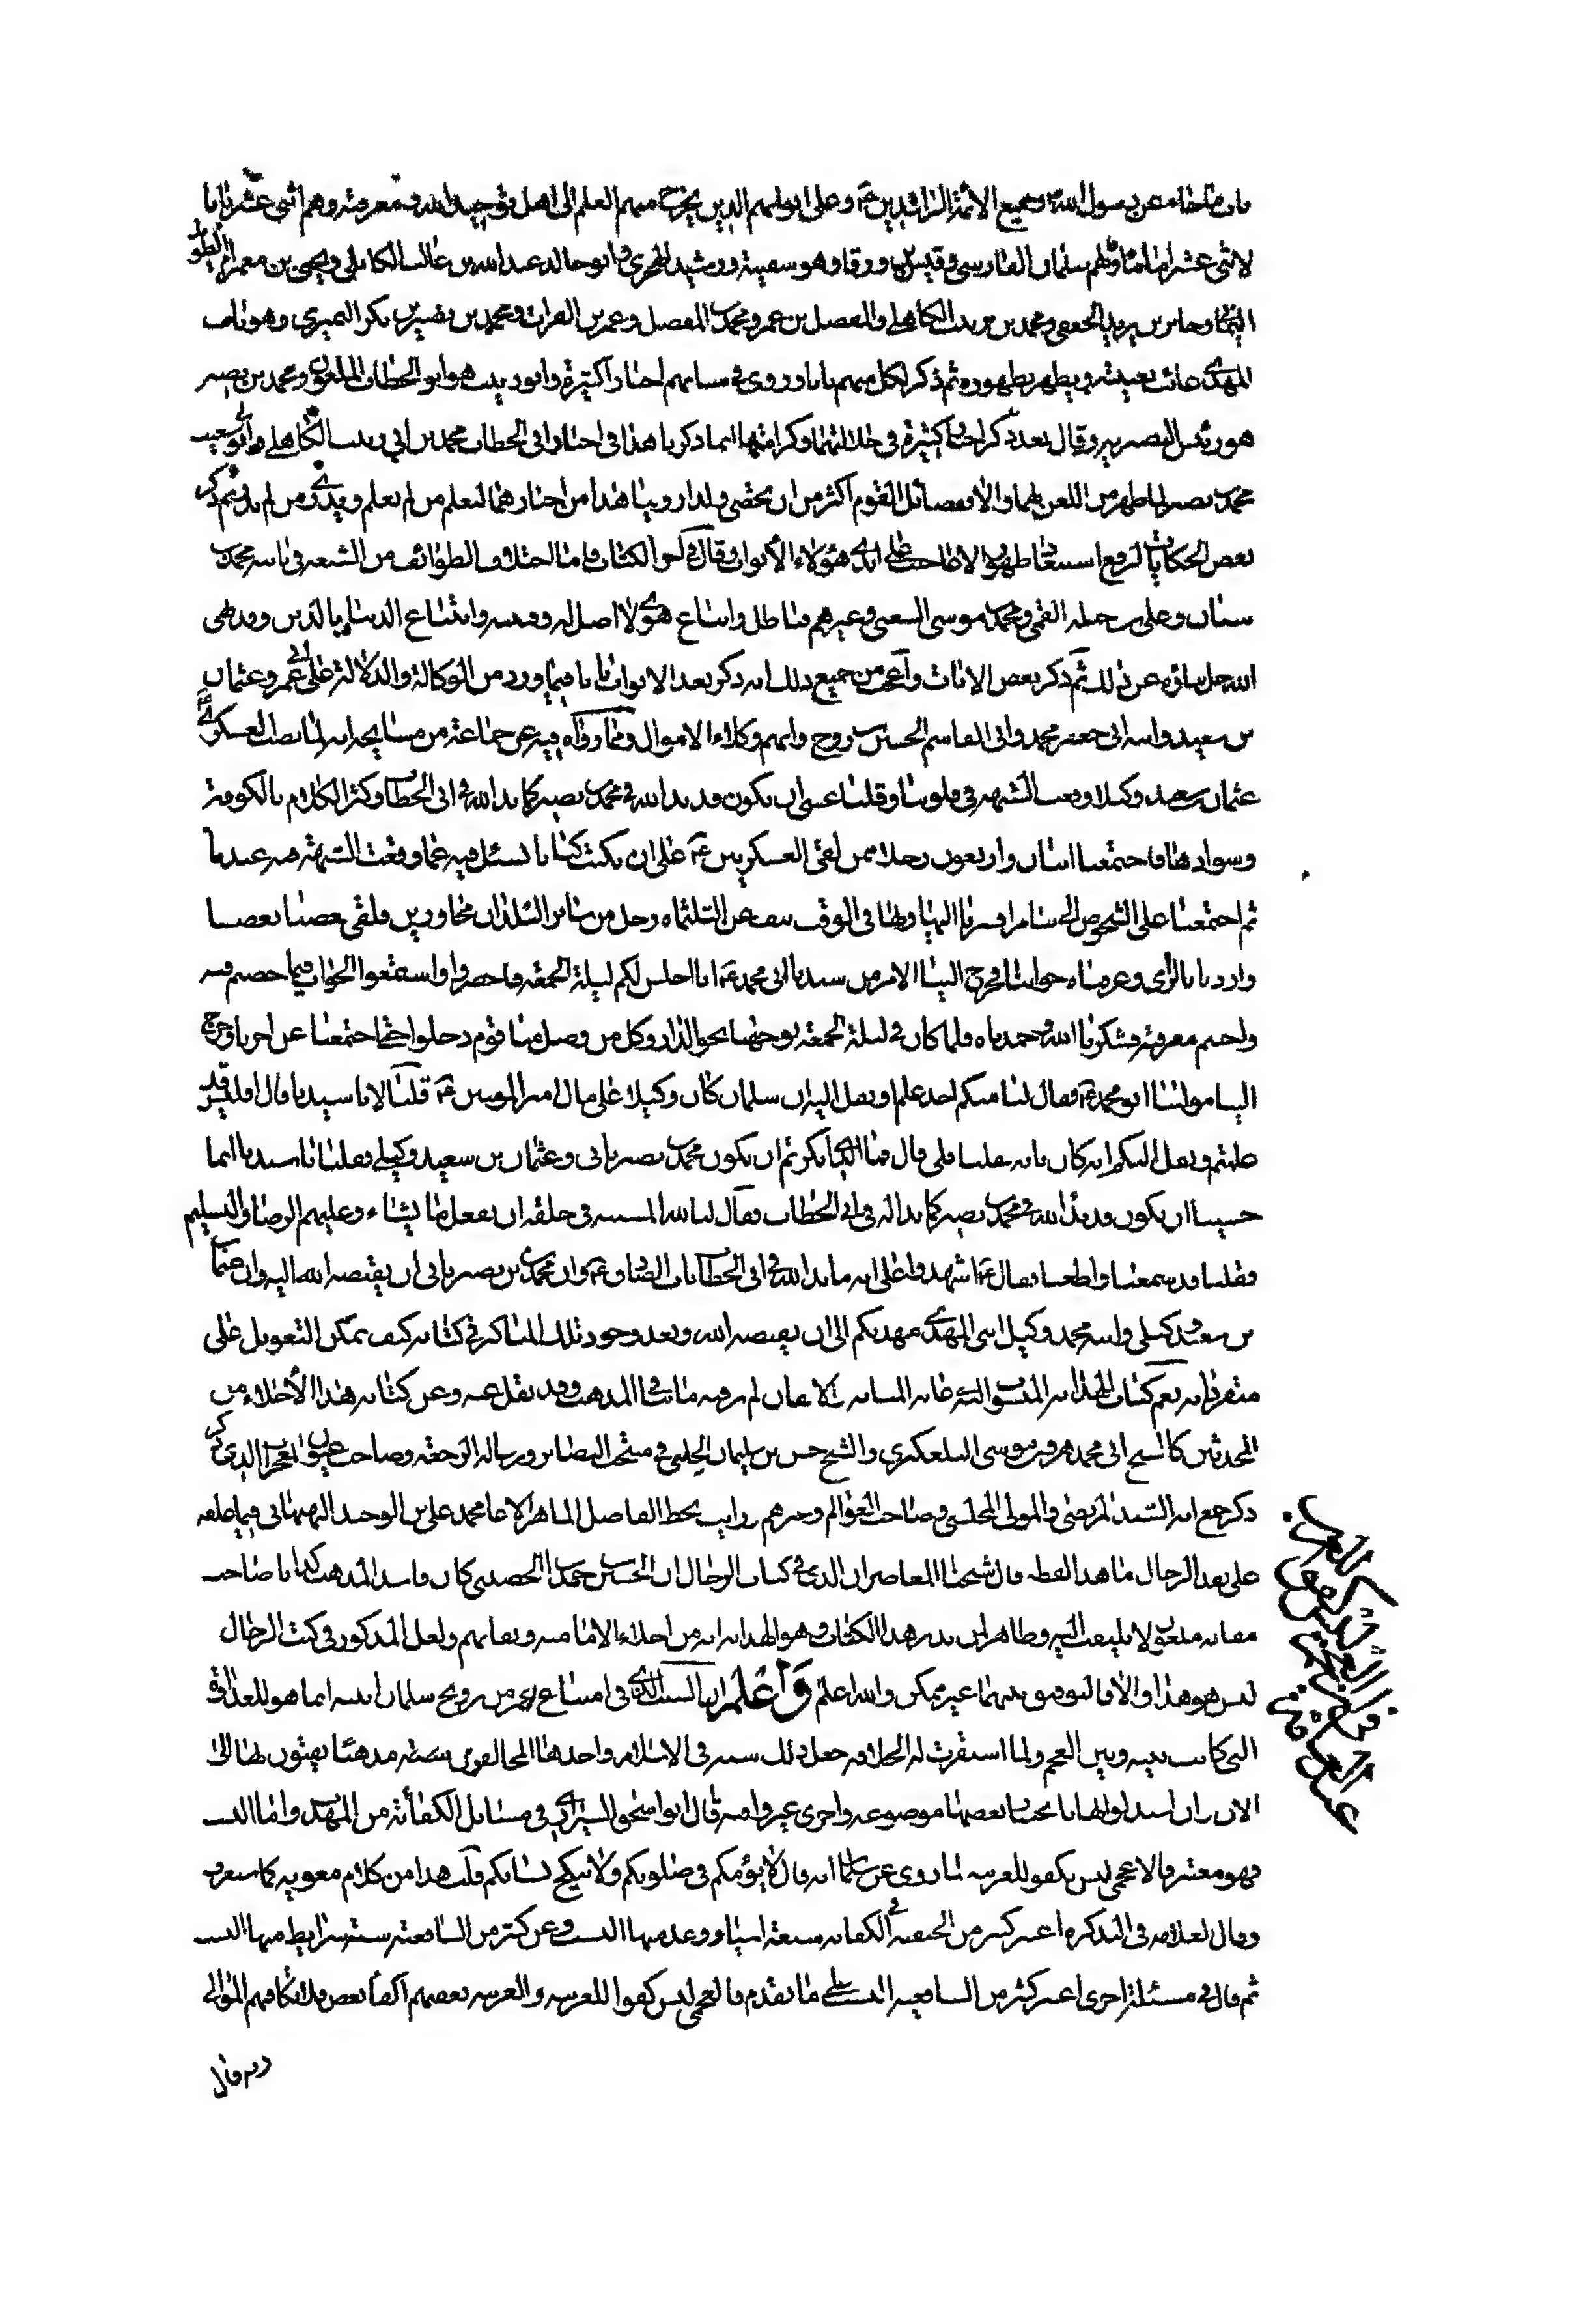 باب ما جاء عن رسول الله ص وجميع الأئمة الراشدين ع وعلى ابوابهم الذين يخرج منهم العلم الى اهل توحيد الله ومعرفته وهم اثنى عشر بابا
لاثنى عشر اماما اولهم سلمان الفارسي وقيس بن ورقا وهو سفينة ورشيد الهجري وابو خالد عبد الله بن غالب الكابلي ويحيى بن معمر ام الطويل
الثمالي وجابر بن يزيد الجعفي ومحمد بن ابي زينب الكاهلي والمفضل بن عمر ومحمد بن المفضل وعمر بن الفرات ومحمد بن نصير بن بكر النميري وهو باب
المهدي غائب بغيبته ويظهر بظهوره ثم ذكر لكل منهم بابا وروى في مسابهم اخبارا كثيرة وابو زينب هو ابو الخطاب الملعون ومحمد بن نصير
هو رئيس النصيرية وقال بعد ذكر اخبار كثيرة في جلالتهما وكرامتهما انما ذكرنا هذا في اخبار ابي الخطاب محمد بن ابي زينب الكاهلي وابو شعيب
محمد بن نصير لما ظهر من اللعن لهما والا ففضائل القوم اكثر من ان تحصى ولذا روينا هذا من اخبارهما ليعلم من لم يعلم
بعض الحكايات لرفع استبعاد ظهور ايات على ايدي هؤلاء الأبواب وقال في اخر الكتاب واما اختلاف الطوائف من الشيعة في ياسر محمد بن
سنان وعلي بن حسكه القمي ومحمد بن موسى السعيي وغيرهم فباطل واتباع هوى لا اصل له
الله جل ثناؤه عن ذلك ثم ذكر بعض الايات واعجب من جميع ذلك انه ذكر بعد الابواب بابا فيما ورد من الوكالة والدلالة على ابي عمرو عثمان
بن سعيد وابنه ابي جعفر محمد وابي القاسم الحسين بن روح وانهم وكلاء الاموال ومما رواه فيه عن جماعة من مشايخه انه لما نصب العسكري ع
عثمان بن سعيد وكيلا وقعت الشبهة في قلوبنا وقلنا عسى ان يكون قد بدا لله في محمد بن نصير كما بدا لله في ابي الخطاب وكثر الكلام بالكوفة
وسوادها فاجتمعنا اثنان واربعون رجلا ممن لقى العسكريين ع على ان نكتب كتابا نسئل فيه عما وقعت الشبهة فيه عندنا
ثم اجتمعنا على الشخوص الى سامرا فسرنا اليها وبها في الوقت نيف عن الثلثماه رجل من سائر البلدان مجاورين فلقى بعضنا بعضا
واردنا بالراى وعرفناه جوابنا فخرج الينا الامر من سيدنا ابي محمد ع انا اجلس لكم ليلة الجمعة فاحضروا واستمعوا الجواب فيما حضتم فيه
واجبتم معرفته فشكرنا الله وحمدناه فلما كان في ليلة الجمعة توجهنا نحو الدار وكل من وصل منا قوم دخلوا حتى اجتمعنا عن اخرنا وخرج
الينا مولينا ابو محمد ع فقال لنا منكم احد علم او نقل اليه ان سلمان كان وكيلا على مال امير المؤمنين ع قلنا لا يا سيدنا قال اوليس قد
علمتم ونقل اليكم انه كان بابه فقلنا بلى قال فما الذي انكرتم ان يكون محمد بن نصير بابي وعثمان بن سعيد وكيلي فقلنا يا سيدنا انما
خشينا ان يكون قد بدا لله في محمد بن نصير كما بدا له في ابي الخطاب فقال لنا لله المشية في خلقه ان يفعل ما يشاء وعليهم الرضا والتسليم
فقلنا قد سمعنا واطعنا فقال ع اشهدوا على انه ما بدا لله في ابي الخطاب باب الصادق ع وان محمد بن نصير بابي الى ان يقبضه الله اليه وان عثمان
بن سعيد وكيلي وابنه محمد وكيل ابني المهدي مهديكم الى ان يقبضه الله وبعد وجود تلك المناكر في كتابه كيف يمكن التعويل على
متفرداته نعم كتاب الهداية المنسوب اليه في غاية المتانة والاتقان لم نر فيه ما ينافي المذهب وقد نقل عنه وعن كتابه هذا الأجلاء من
المحدثين كالشيخ ابي محمد هرون بن موسى التلعكبري والشيخ حسن بن سليمان الحلي في منتخب البصائر ورسالة الرجعة وصاحب عيون المعجزات الذي
ذكر جمع انه السيد المرتضى والمولى المجلسي وصاحب العوالم وغيرهم رايت بخط الفاضل الماهر الاغا محمد علي بن الوحيد البهبهاني فيما علقه
على نقد الرجال ما هذا لفظه قال شيخنا المعاصر ان الذي في كتاب الرجال ان الحسين بن حمدان الحضيني كان فاسد المذهب كذابا صاحب
مقالة ملعون لا يلتفت اليه وظاهر لمن تدبر هذا الكتاب وهو الهداية انه من اجلاء الامامية وثقاتهم ولعل المذكور في كتب الرجال
ليس هو هذا والا فالتوفيق بينهما غير ممكن والله اعلم وَأعْلَم ان السبب الذي في امتناع عمر من تزويج سلمان ابنته انما هو للعداوة
التي كانت بينه وبين العجم ولما استقرت له الخلافة جعل ذلك سنة في الاسلام واحدها المخالفون سنة مذهبا يفتون بها الى
الان وان استدلوا لها باخبار بعضها موضوعة واخرى غير وافية قال ابو اسحق الشيرازي في مسايل الكفائة من المهذب واما النسب
فهو معتبر فالاعجمي ليس بكفو للعربية لما روى عن سلمان انه قال لا نؤمكم في صلوتكم ولا ننكح نسائكم قلت هذا من كلام معوية كما ستعرف
وقال العلامة في التذكرة اعتبر كثير من الحنفية في الكفاية سبعة اشياء وعد منها النسب وعن كثير من الشافعية ستة شرايط منها النسب
ثم قال في مسئلة اخرى اعتبر كثير من الشافعية النسب على ما تقدم فالعجمي ليس كفوا للعربية والعربية بعضهم اكفاء بعض فلا تكافيهم الموالي
وبه قال